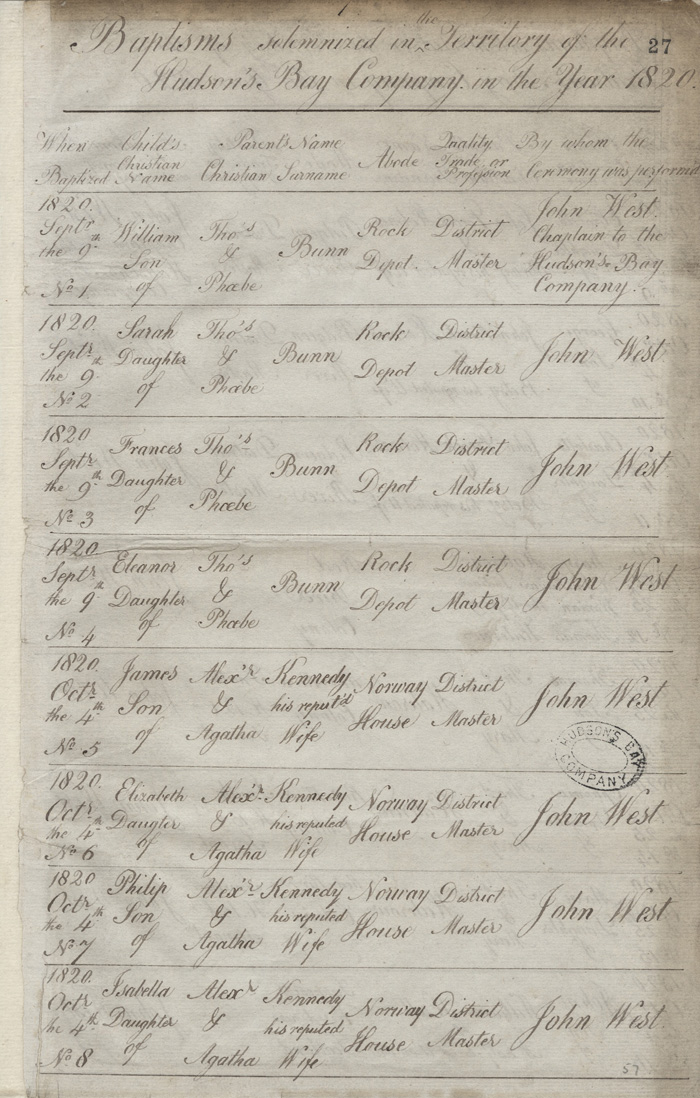 1
Baptisms solemnized in the Territory of the 27
Hudson's Bay Company in the Year 1820.
When Child's Parent's Name Quality By whom the
Christian Abode Trade or
Baptized Name Christian Surname Profession Ceremony was performed
1820. John West.
Septr William Tho's Rock District Chaplain to the
the 9th Son & Bunn Depot. Master Hudson's Bay
No 1 of Phœbe Company.
1820. Sarah Tho's Rock District
Septr Daughter & Bunn John West
the 9th of Phœbe Depot Master
No 2
1820 Frances Tho's Rock District
Septr Daughter & Bunn John West
the 9th of Phœbe Depot Master
No 3
1820 Eleanor Tho's Rock District
Septr Daughter & Bunn John West
the 9th of Phœbe Depot Master
No 4
1820. James Alex'r Kennedy Norway District
Octr Son & his reput'd John West
the 4th of Agatha Wife House Master
No 5
HUDSON'S BAY
COMPANY
1820. Elizabeth Alex'r Kennedy Norway District
Octr Daugter & his reputed John West
the 4th of Agatha Wife House Master
No 6
1820 Philip Alex'r Kennedy Norway District
Octr Son & his reputed John West
the 4th of Agatha Wife House Master
No 7
1820. Isabella Alexr Kennedy Norway District
Octr Daughter & his reputed John West
he 4th of Agatha Wife House Master
No 8
57